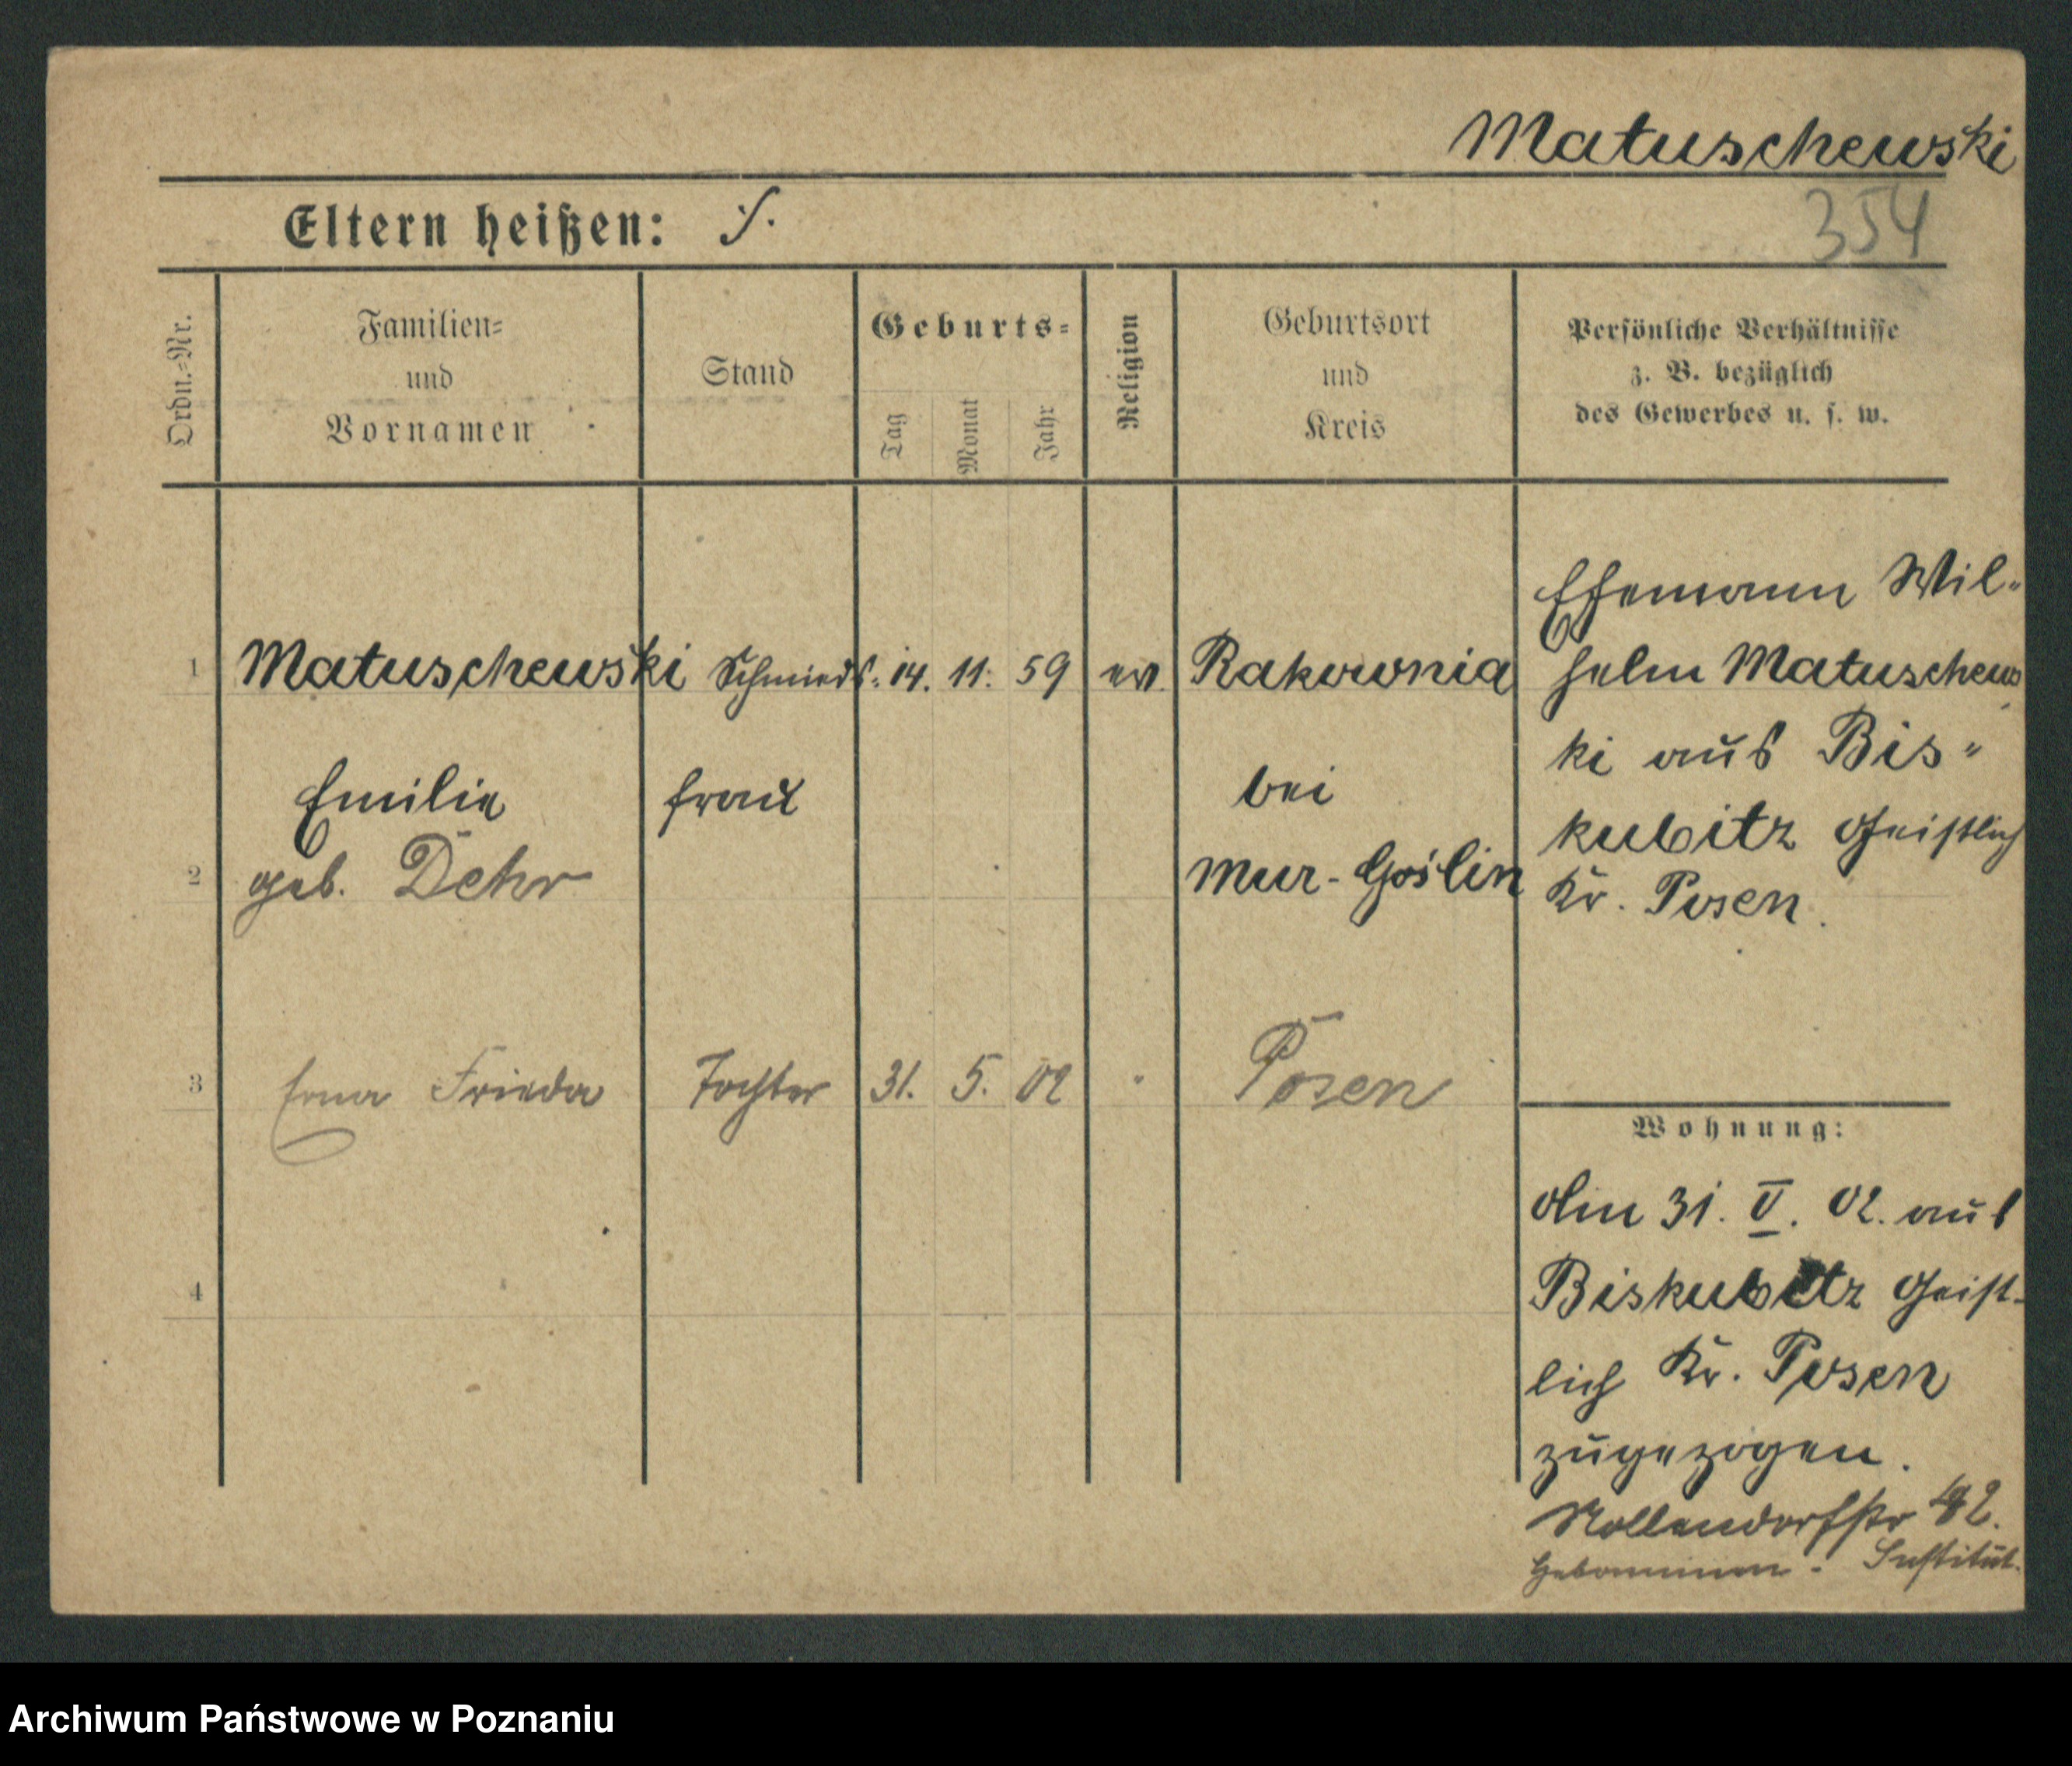 Matuschewski
354
Eltern heißen: ./.
Ordn.-Nr.
Familien-
und
Vornamen
Stand
Geburts-
Tag
Monat
Jahr
Religion
Geburtsort
und
Kreis
Persönliche Verhältnisse
z. B. bezüglich
des Gewerbes u. s. w.
1 Matuschewski Schmieds- 14. 11. 59 ev. Rakownia
Emilie frau bei
2 geb. Dehr Mur-Goslin
Ehemann Wil-
helm Matuschews
ki aus Bis-
kubitz Geistlich
Kr. Posen.
3 Erna Frieda Tochter 31. 5. 02 " Posen
Wohnung:
Am 31. V. 02. aus
Biskubitz Geist-
lich Kr. Posen
zugezogen.
4
Nollendorfstr 42.
Hebammen-Institut.
Archiwum Państwowe w Poznaniu